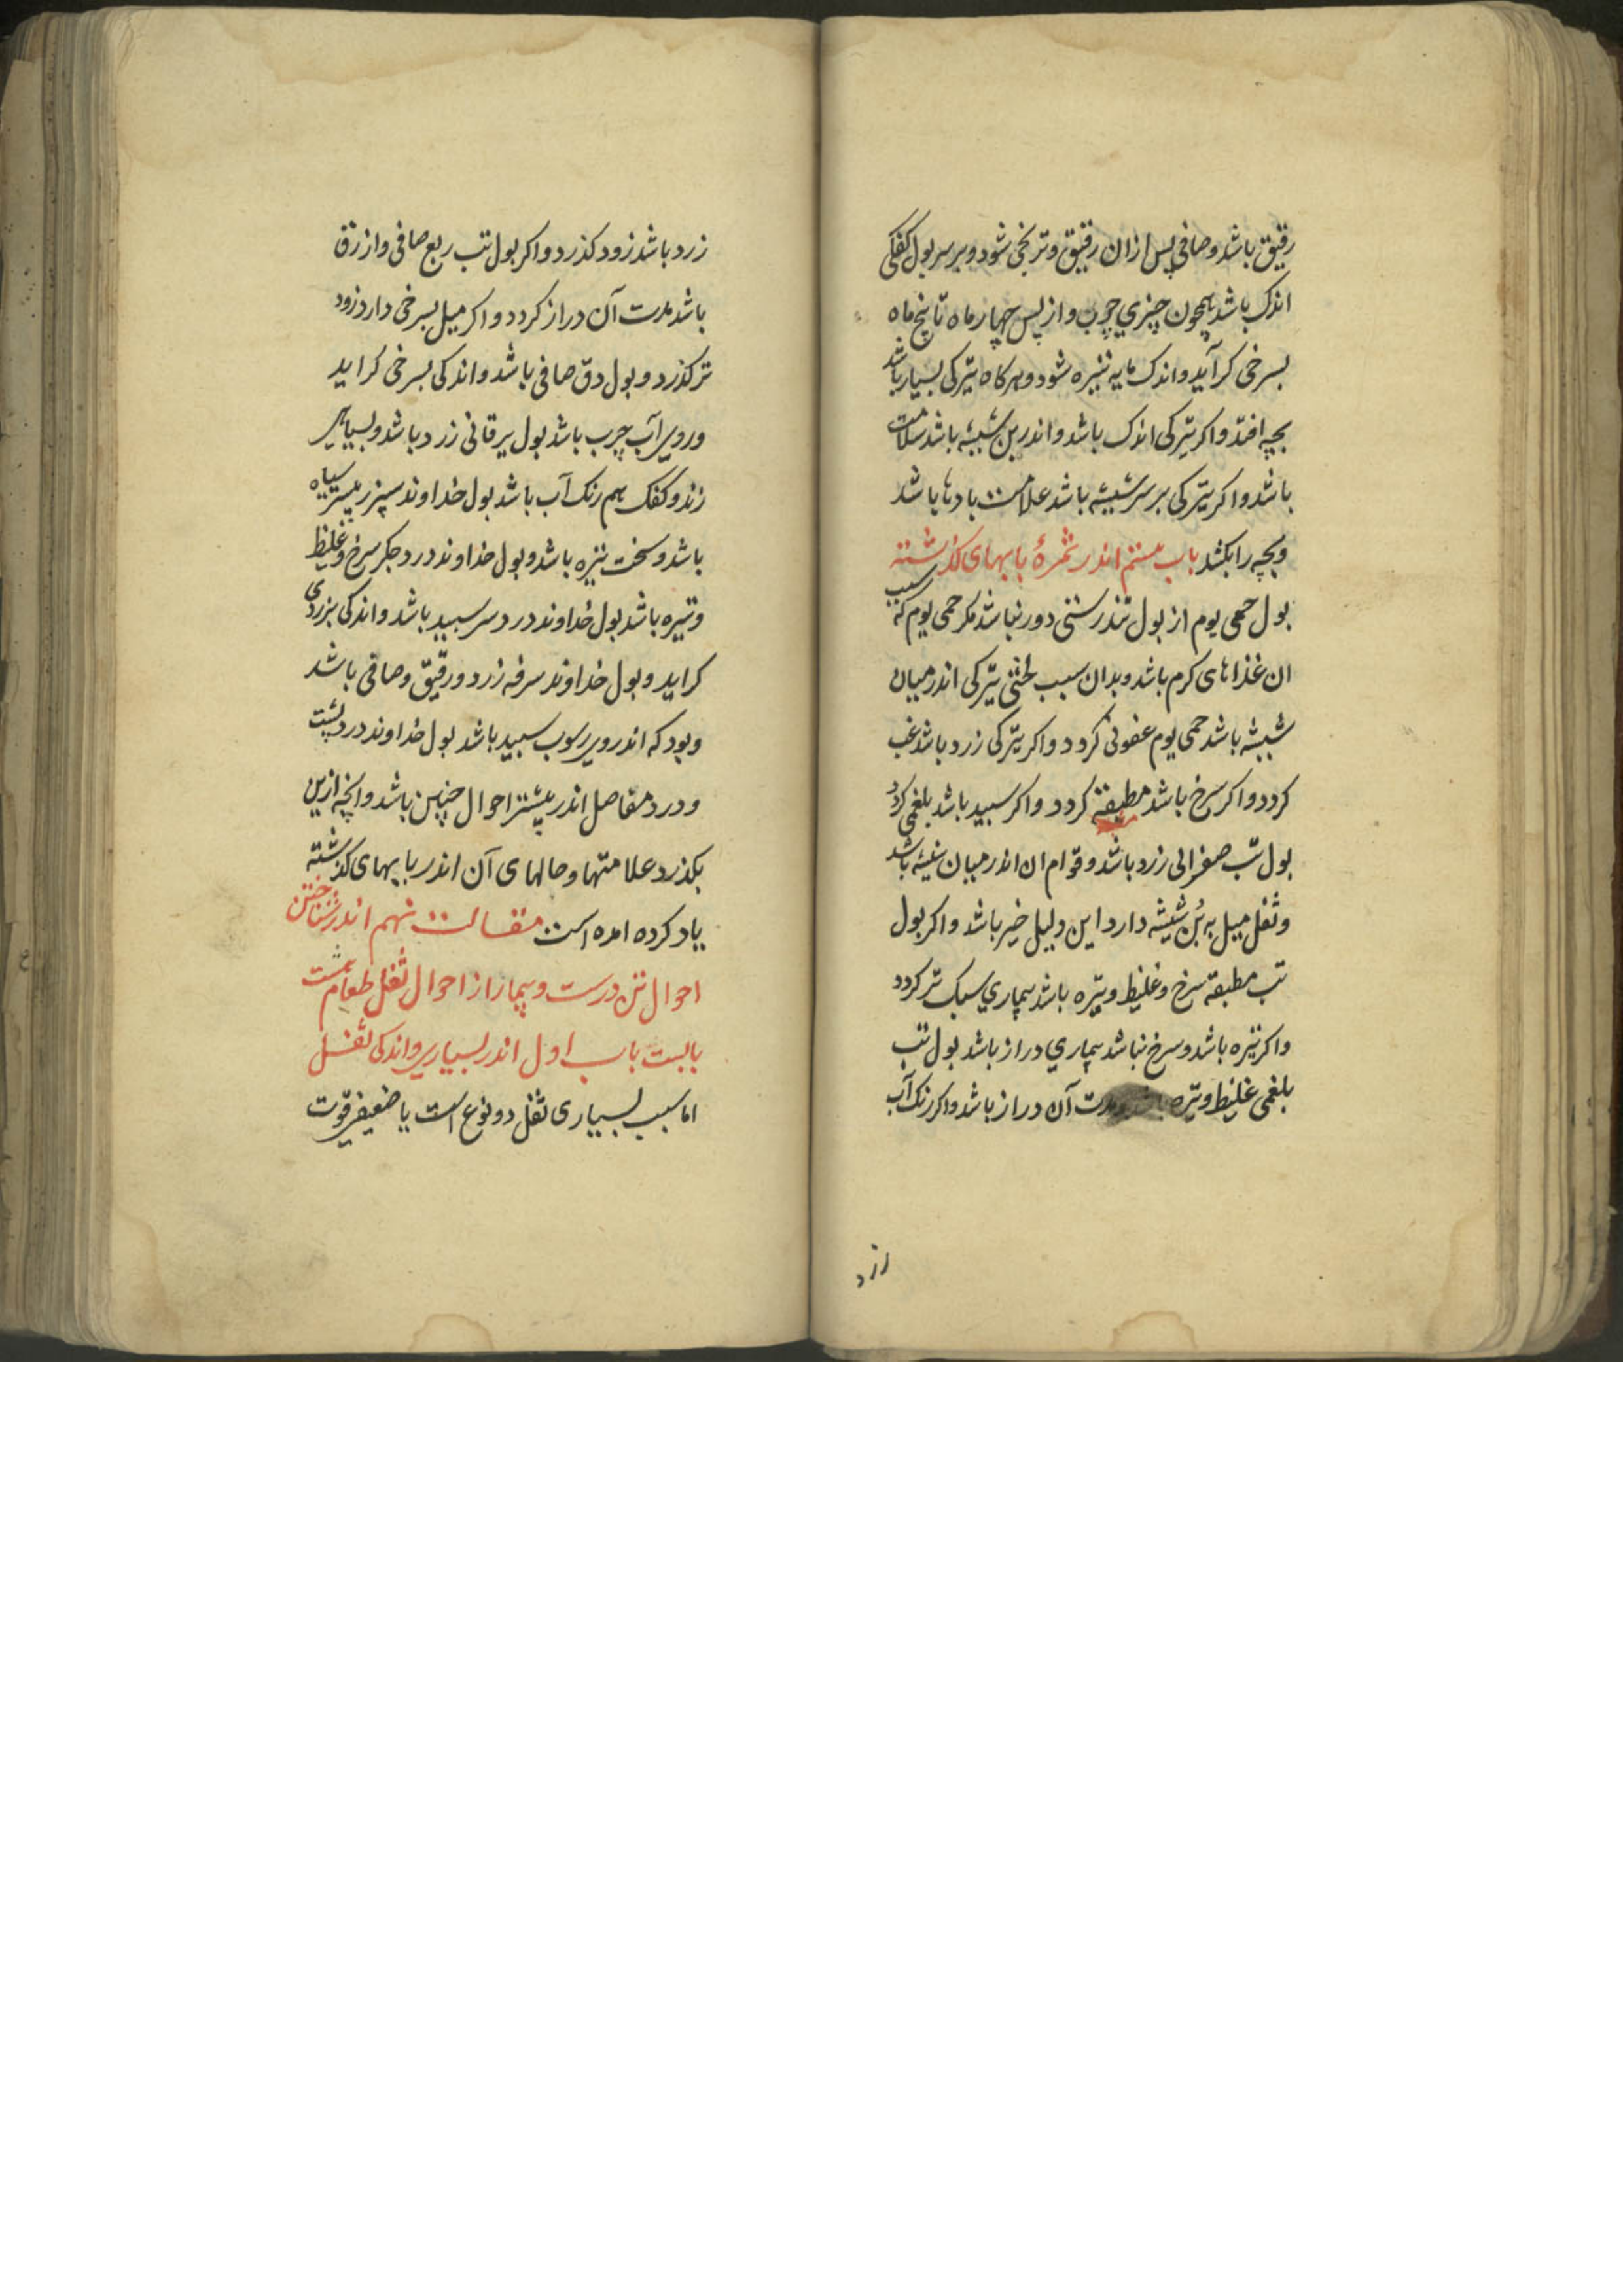 رقیق باشد و صافی پس ازان رقیق و ترنجی شود و بر سر بول کفکی
اندک باشد همچون چیزی چرب و از پس چهار ماه تا پنج ماه
بسرخی کرآید و اندک مایه تیره شود و هرکاه تیرکی بسیار باشد
بچه افتد و اکر تیرکی اندک باشد و اندر بن شیشه باشد سلامت
باشد و اکر تیرکی بر سر شیشه باشد علامت بادها باشد
و بچه را بکشد باب بیستم اندر ثمرهٔ بابهای کذشته
بول حمی یوم از بول تندرستی دور نباشد مکر حمی یوم که سبب
ان غذاهای کرم باشد و بدان سبب لختی تیرکی اندر میان
شیشه باشد حمی یوم عفونی کردد و اکر تیرکی زرد باشد غب
کردد و اکر سرخ باشد مطبقه کردد و اکر سپید باشد بلغمی کردد
بول تب صفرائی زرد باشد و قوام ان اندر میان شیشه باشد
و ثفل میل به بُن شیشه دارد این دلیل خیر باشد و اکر بول
تب مطبقه سرخ و غلیظ و تیره باشد بیماری سبک تر کردد
و اکر تیره باشد و سرخ نباشد بیماری دراز باشد بول تب
بلغمی غلیظ و تیره باشد و مدت آن دراز باشد و اکر رنک آب
زرد
زرد باشد زود کذرد و اکر بول تب ربع صافی و ازرق
باشد مدت آن دراز کردد و اکر میل بسرخی دارد زود
تر کذرد و بول دق صافی باشد و اندکی بسرخی کراید
و روی آب چرب باشد بول یرقانی زرد باشد و بسیاهی
زند و کفک هم رنک آب باشد بول خداوند سپرز بیشتر سیاه
باشد و سخت تیره باشد و بول خداوند درد جکر سرخ و غلیظ
و تیره باشد بول خداوند درد سر سپید باشد و اندکی بزردی
کراید و بول خداوند سرفه زرد و رقیق و صافی باشد
و بود که اندر وی رسوب سپید باشد بول خداوند درد پشت
و درد مفاصل اندر بیشتر احوال چنین باشد و انچه ازین
بکذرد علامتها و حالهای آن اندر بابهای کذشته
یاد کرده امده است مقالت نهم اندر شناختن
احوال تن درست و بیمار از احوال ثفل طعام هشت
بابست باب اول اندر بسیاری و اندکی ثفل
اما سبب بسیاری ثفل دو نوع است یا ضعیفی قوت